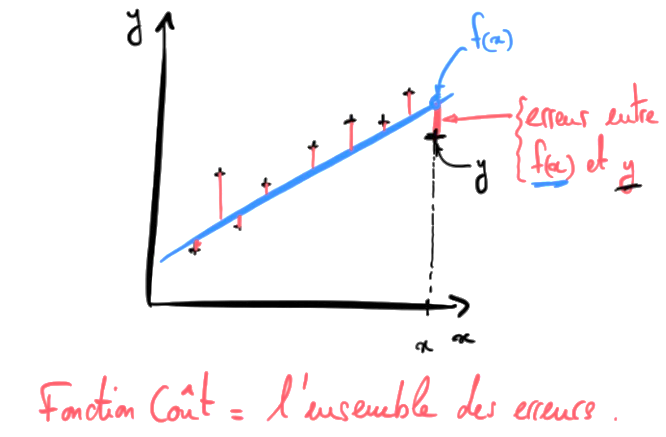 y
f(x)
erreur entre
f(x) et y
y
x x
Fonction Coût = l'ensemble des erreurs.